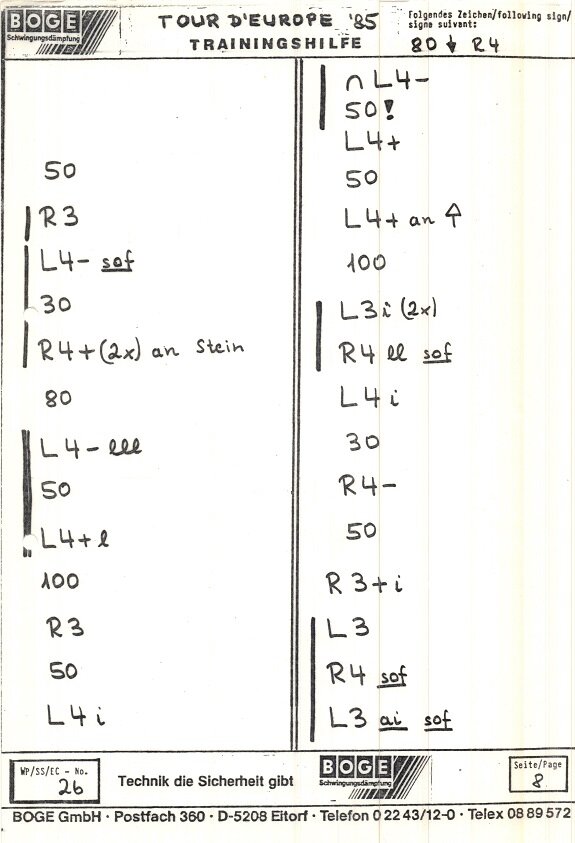 BOGE
Schwingungsdämpfung
TOUR D'EUROPE '85
TRAININGSHILFE
Folgendes Zeichen/following sign/
signe suivant:
80 ↓ R4
50
R3
L4- sof
30
R4+(2x) an Stein
80
L4- lll
50
L4+ l
100
R3
50
L4 i
∩ L4-
50!
L4+
50
L4+ an ↑
100
L3 i (2x)
R4 ll sof
L4 i
30
R4-
50
R3+i
L3
R4 sof
L3 ai sof
WP/SS/EC - No.
26
Technik die Sicherheit gibt
BOGE
Schwingungsdämpfung
Seite/Page
8
BOGE GmbH · Postfach 360 · D-5208 Eitorf · Telefon 0 22 43/12-0 · Telex 08 89 572